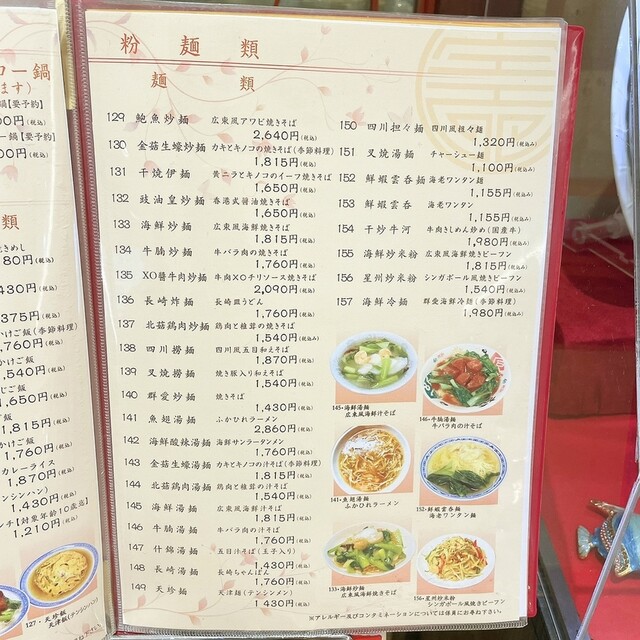 粉麺類
麺類
129 鮑魚炒麺 広東風アワビ焼きそば
2,640円(税込)
130 金菇生蠔炒麺 カキとキノコの焼きそば(季節料理)
1,815円(税込)
131 干焼伊麺 黄ニラとキノコのイーフ焼きそば
1,650円(税込)
132 豉油皇炒麺 香港式醤油焼きそば
1,650円(税込)
133 海鮮炒麺 広東風海鮮焼きそば
1,815円(税込)
134 牛腩炒麺 牛バラ肉の焼きそば
1,760円(税込)
135 XO醬牛肉炒麺 牛肉XOチリソース焼きそば
2,090円(税込)
136 長崎炸麺 長崎皿うどん
1,760円(税込)
137 北菇鶏肉炒麺 鶏肉と椎茸の焼きそば
1,540円(税込み)
138 四川撈麺 四川風五目和えそば
1,870円(税込)
139 叉焼撈麺 焼き豚入り和えそば
1,540円(税込)
140 群愛炒麺 焼きそば
1,430円(税込)
141 魚翅湯麺 ふかひれラーメン
2,860円(税込)
142 海鮮酸辣湯麺 海鮮サンラータンメン
1,760円(税込)
143 金菇生蠔湯麺 カキとキノコの汁そば(季節料理)
1,815円(税込)
144 北菇鶏肉湯麺 鶏肉と椎茸の汁そば
1,540円(税込)
145 海鮮湯麺 広東風海鮮汁そば
1,815円(税込)
146 牛腩湯麺 牛バラ肉の汁そば
1,760円(税込)
147 什錦湯麺 五目汁そば(玉子入り)
1,760円(税込)
148 長崎湯麺 長崎ちゃんぽん
1,430円(税込)
1,760円(税込)
149 天珍麺 天津麺(テンシンメン)
1,430円(税込)
150 四川担々麺 四川風担々麺
1,320円(税込)
151 叉焼湯麺 チャーシュー麺
1,100円(税込)
152 鮮蝦雲呑麺 海老ワンタン麺
1,155円(税込)
153 鮮蝦雲呑 海老ワンタン
1,155円(税込)
154 干炒牛河 牛肉きしめん炒め(国産牛)
1,980円(税込)
155 海鮮炒米粉 広東風海鮮焼きビーフン
1,815円(税込)
156 星州炒米粉 シンガポール風焼きビーフン
1,540円(税込)
157 海鮮冷麺 群愛海鮮冷麺(季節料理)
1,980円(税込)
145・海鮮湯麺
広東風海鮮汁そば
146・牛腩湯麺
牛バラ肉の汁そば
141・魚翅湯麺
ふかひれラーメン
152・鮮蝦雲呑麺
海老ワンタン麺
133・海鮮炒麺
広東風海鮮焼きそば
156・星州炒米粉
シンガポール風焼きビーフン
※アレルギー及びコンタミネーションについては係員にお尋ね下さい。
ロー鍋
ます)
鍋【要予約】
00円(税込)
ー鍋【要予約】
00円(税込)
類
焼きめし
80円(税込)
430円(税込)
375円(税込)
かけご飯(季節料理)
,760円(税込)
かけご飯
,540円(税込)
じご飯
1,650円(税込)
ご飯
1,815円(税込)
かけご飯
1,760円(税込)
カレーライス
1,870円(税込)
テンシンハン)
1,430円(税込)
ンチ【対象年齢10歳迄】
1,210円(税込)
127・天珍飯
天津飯(テンシンハン)